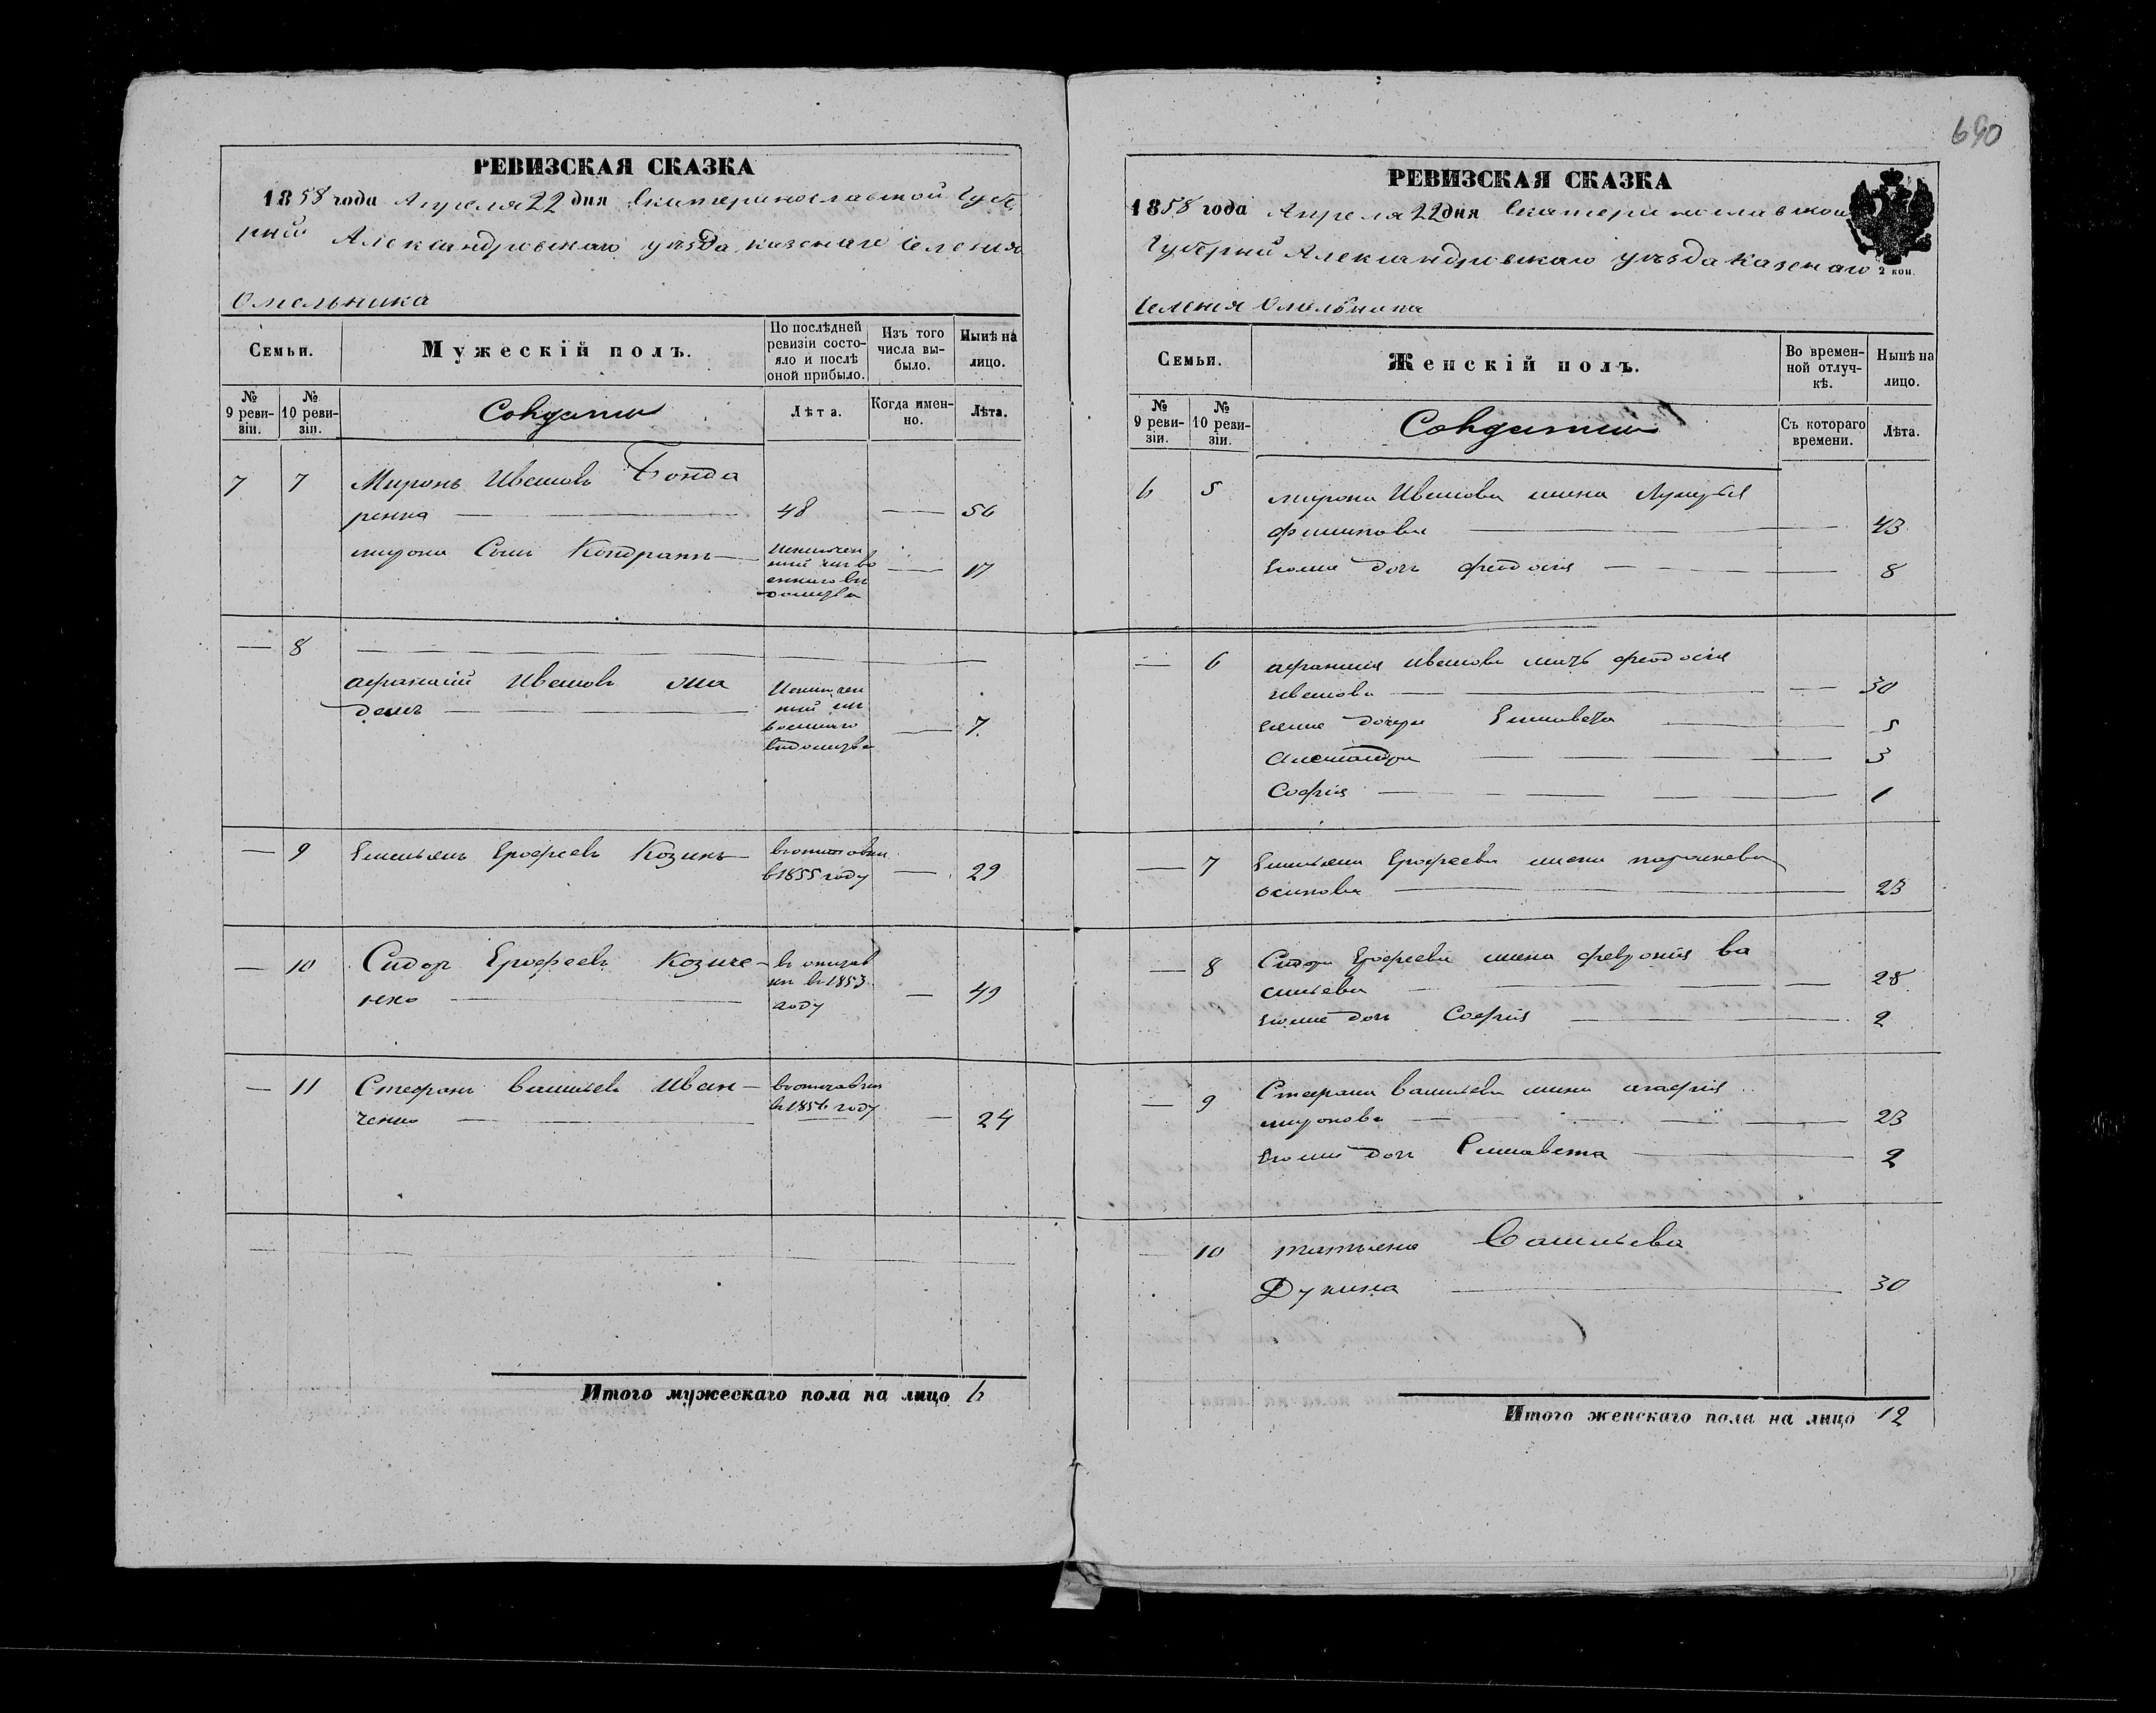 690
РЕВИЗСКАЯ СКАЗКА
1858 года Апреля 22 дня Екатеринославской Губе
рнїй Александровскаго уезда казенаго Селения
Омельника
Семьи.
Мужескій полъ.
По послѣдней ревизіи состояло и послѣ оной прибыло.
Изъ того числа выбыло.
Нынѣ на лицо.
№ 9 ревизіи.
№ 10 ревизіи.
Солдаты
Лѣта.
Когда именно.
Лѣта.
7 7 Миронъ Ивановъ Бонда
ренка 48 56
мирона Сынъ Кондратъ 17
— 8
афанасій Ивановъ
7
— 9 Емельянъ Ерофеевъ Козинъ
в 1855 году 29
— 10 Сидор Ерофеевъ Козине
нко в 1853 году 49
— 11 Стефанъ васильев Иван
ченко в 1856 году 24
Итого мужескаго пола на лицо 6
РЕВИЗСКАЯ СКАЗКА
1858 года Апреля 22 дня Екатеринославской
Губернїй Александровскаго уезда Казенаго
2 коп.
селения Омельника
Семьи.
Женскій полъ.
Во временной отлучкѣ.
Нынѣ на лицо.
№ 9 ревизіи.
№ 10 ревизіи.
Солдатки
Съ котораго времени.
Лѣта.
6 5 мирона Иванова жена
43
Егоже дочь феодосия 8
— 6 афанасия иванова мать феодосия
иванова 30
дочери Елисавета 5
Александра 3
София 1
— 7 Емельяна Ерофеева жена параскева
осипова 23
— 8 Сидора Ерофеева жена феврония ва
сильева 28
Егоже дочь София 2
— 9 Стефана васильева жена агафия
миронова 23
Егоже дочь Елисавета 2
— 10 татьяна Васильева
Дукина 30
Итого женскаго пола на лицо 12